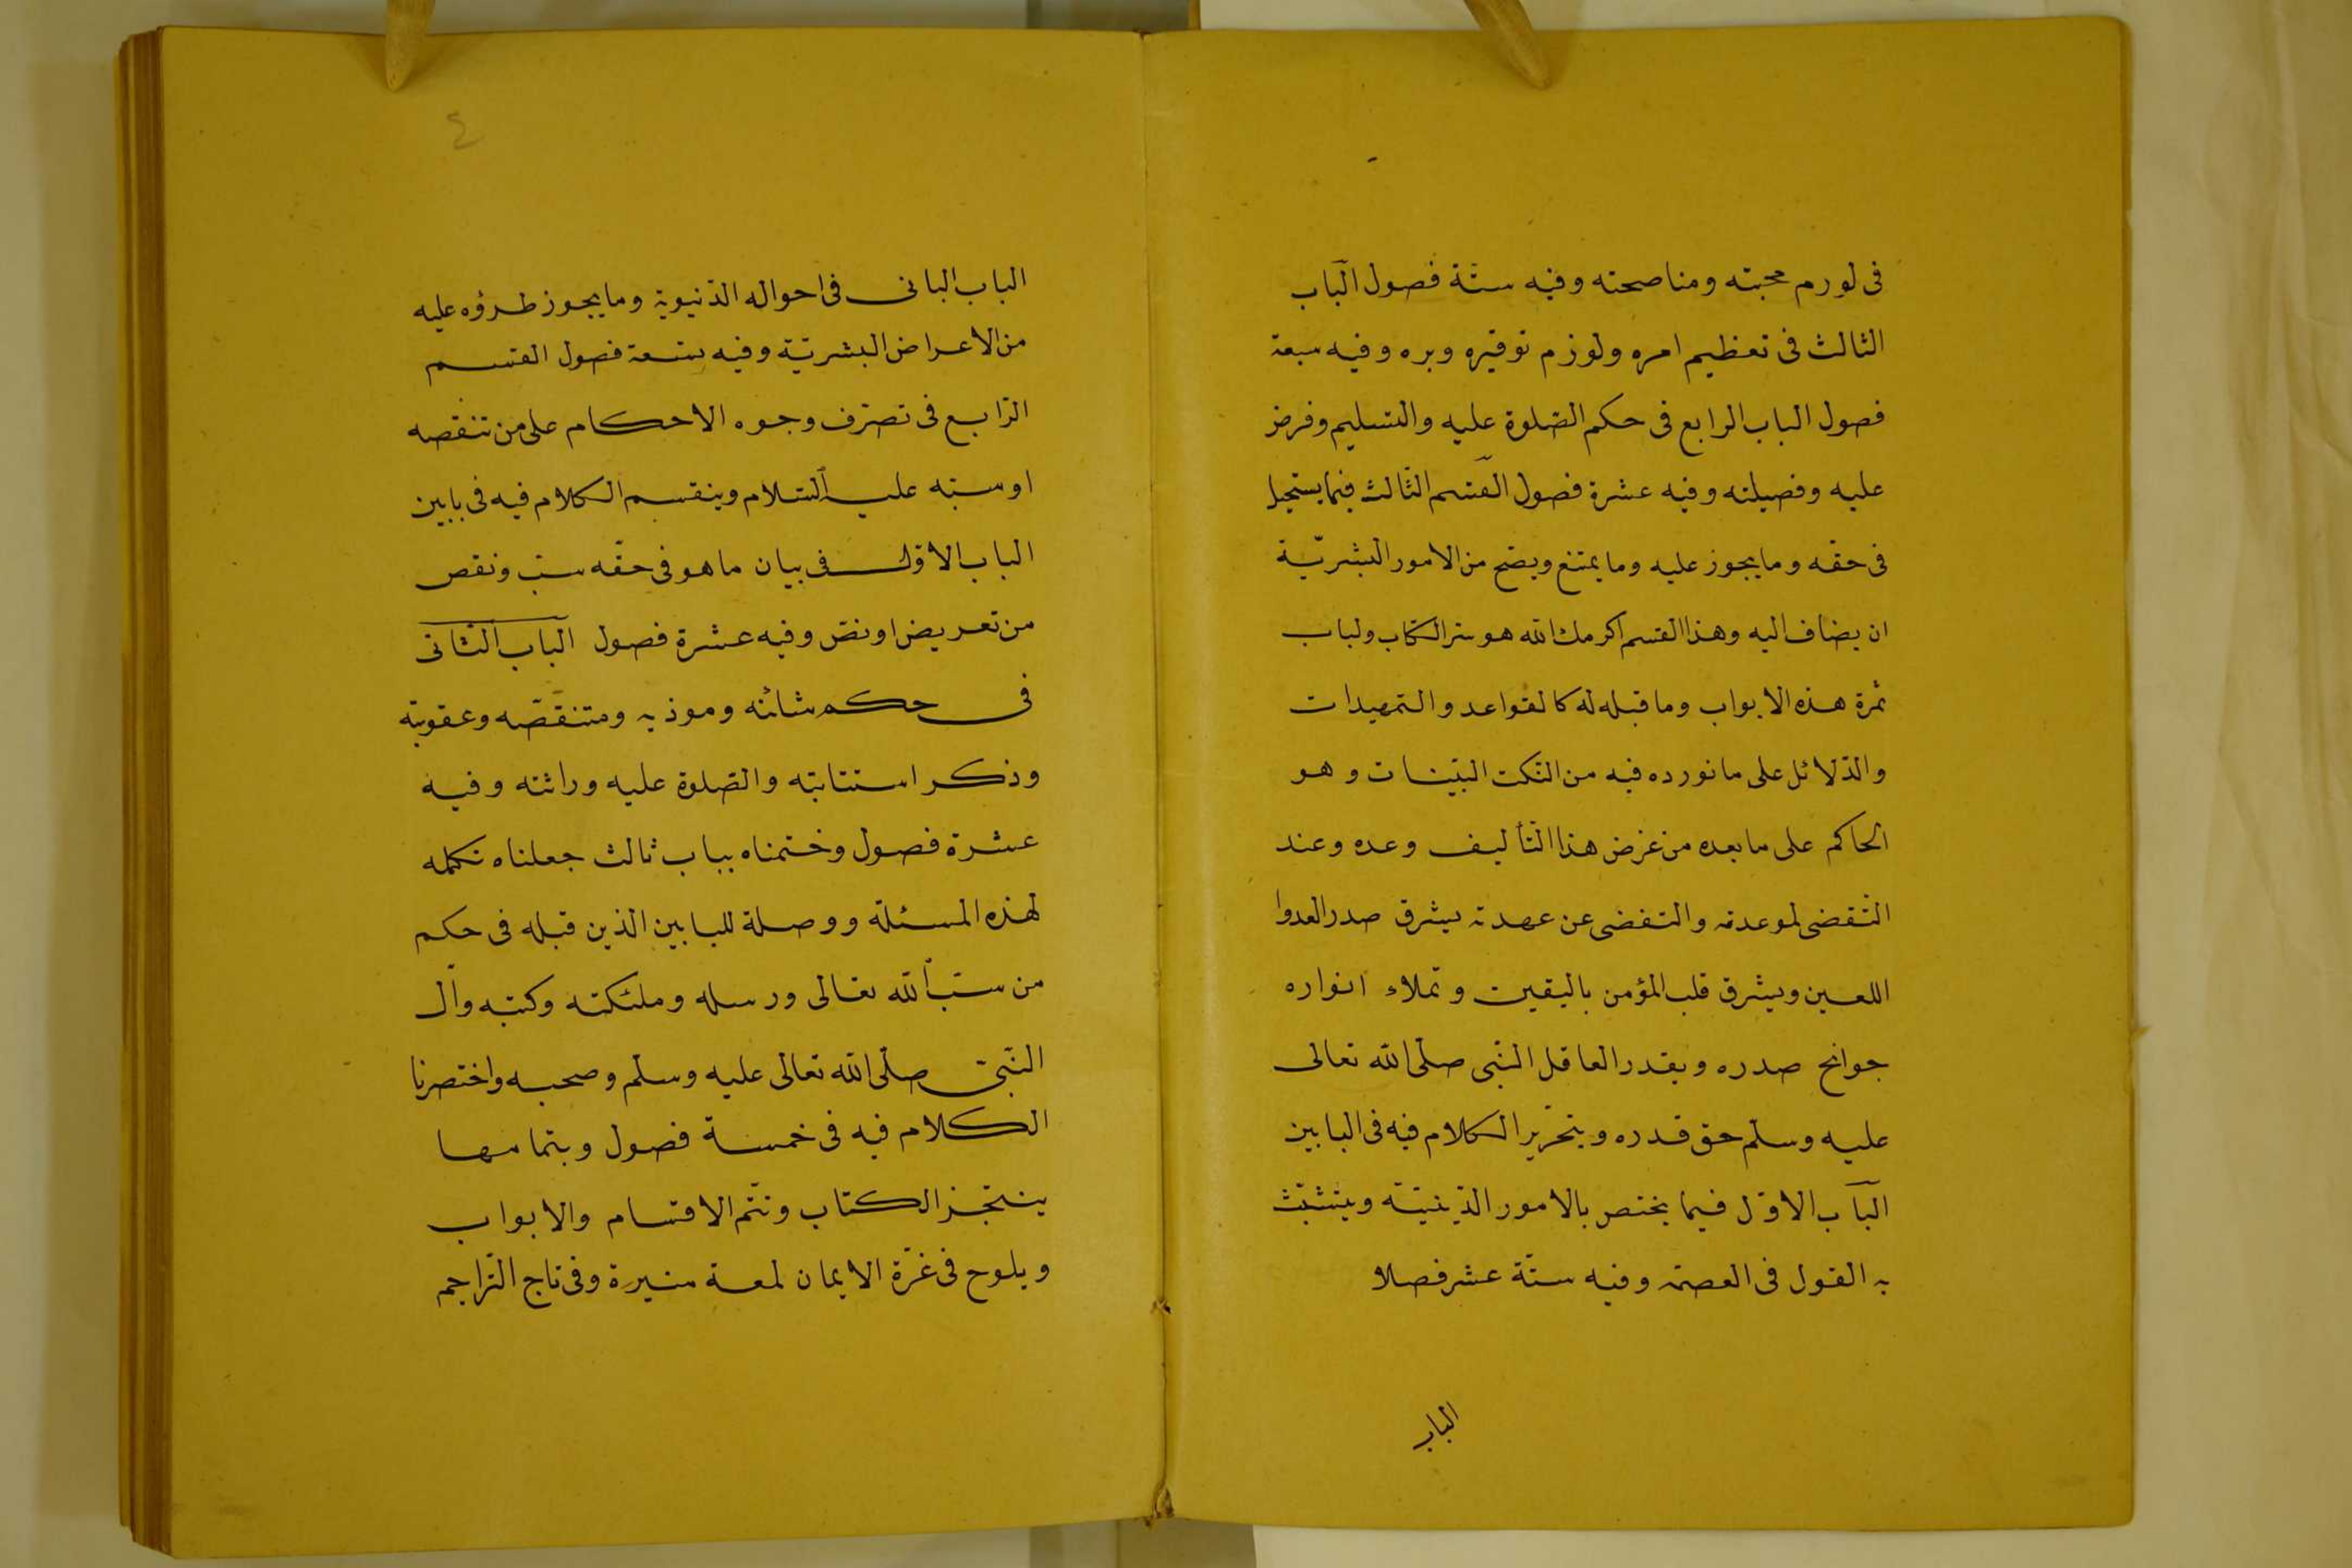 فى لورم محبته ومناصحته وفيه ستّة فصول الباب
الثالث فى تعظيم امره ولوزم توقيره وبره وفيه سبعة
فصول الباب الرابع فى حكم الصّلوة عليه والتسليم وفرض
عليه وفصيلته وفيه عشرة فصول القسم الثّالث فيما يستحيل
فى حقه وما يجوز عليه وما يمتنع ويصّح من الامور البشريّة
ان يضاف اليه وهذا القسم اكرمك الله هو سر الكتاب ولباب
ثمرة هذه الابواب وما قبله له كالقواعد والتمهيدات
والدّلائل على ما نورده فيه من النّكت البيّنات وهو
الحاكم على ما بعده من غرض هذا التّأليف وعده وعند
التّقضى لموعدته والتفضى عن عهدته يشرق صدر العدوا
اللعين ويشرق قلب المؤمن باليقين وتملاء انواره
جوانح صدره ويقدر العاقل النّبى صلّى الله تعالى
عليه وسلّم حق قدره ويتحرّير الكلام فيه فى البابين
الباب الاوّل فيما يختص بالامور الدّينيّة ويتشبّث
به القول فى العصمة وفيه ستّة عشر فصلا
الباب
٤
الباب البانى فى احواله الدّنيوية وما يجوز طرؤه عليه
من الاعراض البشريّة وفيه ستعة فصول القسم
الرّابع فى تصرّف وجوه الاحكام على من تنقصه
او سبّه عليه السّلام وينقسم الكلام فيه فى بابين
الباب الاوّل فى بيان ما هو فى حقّه سبّ ونقص
من تعريض او نصّ وفيه عشرة فصول الباب الثّانى
فى حكم شائنه وموذيه ومتنقصّه وعقوبته
وذكر استتابته والصّلوة عليه وراثته وفيه
عشرة فصول وختمناه بباب ثالث جعلناه تكمله
لهذه المسئلة ووصلة للبابين الذين قبله فى حكم
من سبّ الله تعالى ورسله وملئكته وكتبه وآل
النّبىّ صلّى الله تعالى عليه وسلّم وصحبه واختصرنا
الكلام فيه فى خمسة فصول وبتمامها
ينتجز الكتاب وتتّم الاقسام والابواب
ويلوح فى غرّة الايمان لمعة منيرة وفى تاج التّراجم